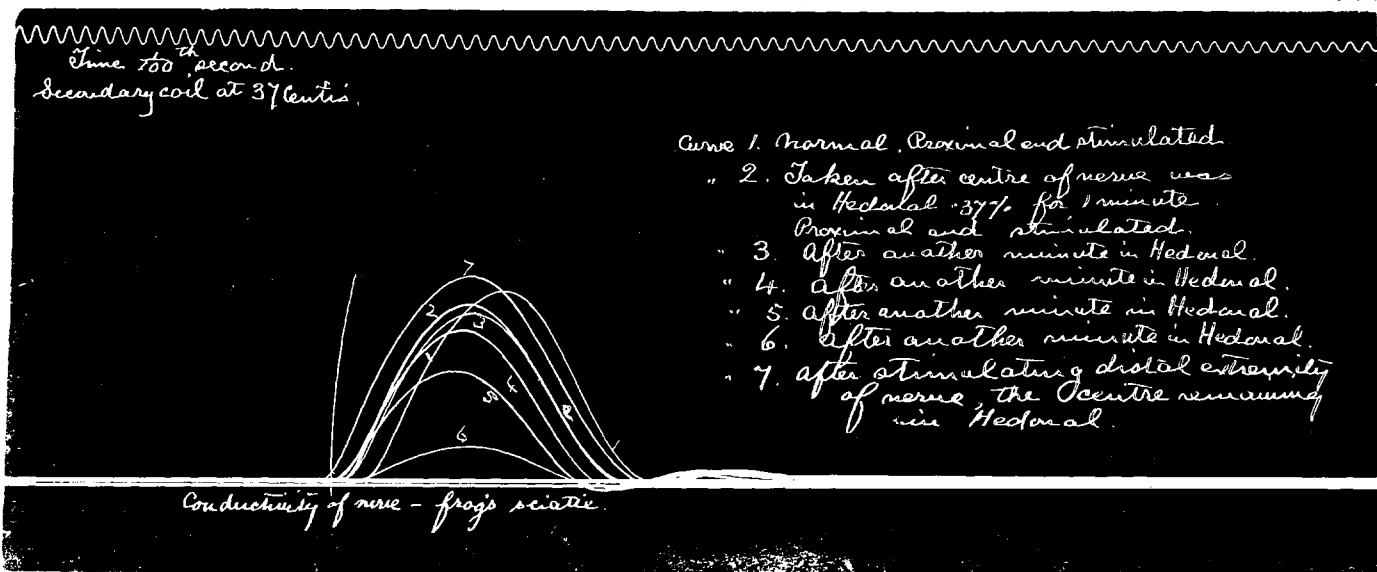 Time 1/100th second.
Secondary coil at 37 Centis.
Curve 1. Normal. Proximal end stimulated
" 2. Taken after centre of nerve was
in Hedonal .37% for 1 minute
Proximal end stimulated.
" 3. After another minute in Hedonal.
" 4. After another minute in Hedonal.
" 5. After another minute in Hedonal.
" 6. After another minute in Hedonal.
" 7. After stimulating distal extremity
of nerve, the centre remaining
in Hedonal.
7
2
3
1
4
5
2
1
6
Conductivity of nerve - frog's sciatic.